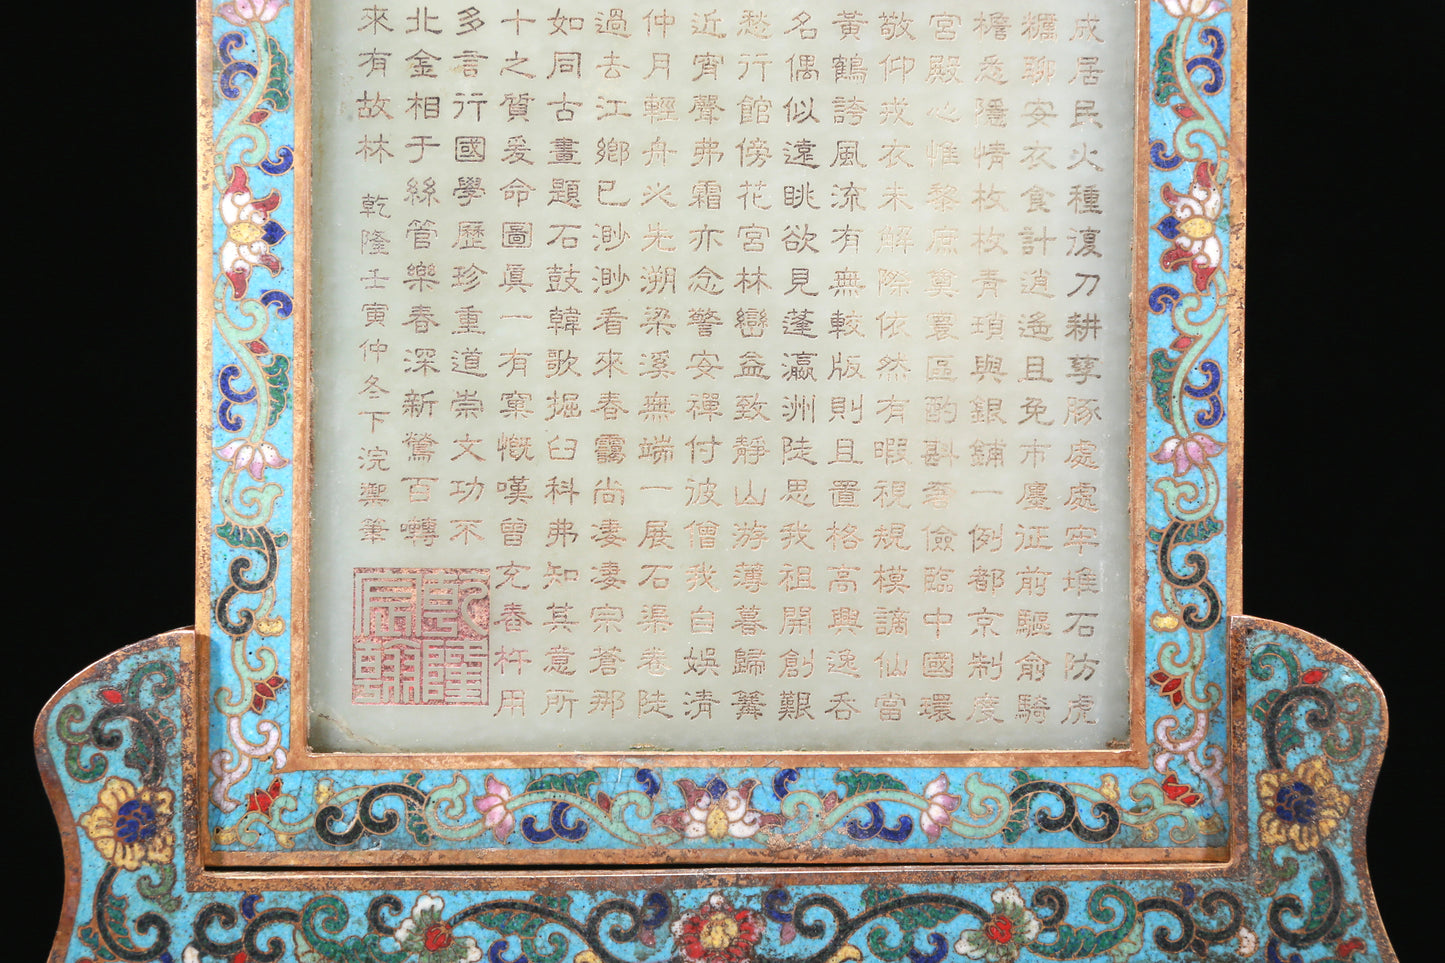 成居民火種復刀耕孳豚處處牢堆石防虎
糲聊安衣食計逍遙且免市廛征前驅俞騎
檐忽隱情枚枚青瑣與銀鋪一例都京制度
宮殿心惟黎庶奠寰區酌斟奢儉臨中國環
敬仰戎衣未解際依然有暇視規模謫仙當
黃鶴誇風流有無較版則且置格高興逸吞
名偶似遠眺欲見蓬瀛洲陡思我祖開創艱
愁行館傍花宮林巒益致靜山游薄暮歸籌
近宵聲弗霜亦念警安禪付波僧我白娛清
仲月輕舟必先溯梁溪無端一展石渠卷陡
過去江鄉已渺渺看來春靄尚淒淒宗蒼那
如同古畫題石鼓韓歌掘臼科弗知其意所
十之質爰命圖真一有窠慨嘆曾充舂杵用
多言行國學歷珍重道崇文功不
北金相于絲管樂春深新鶯百囀
來有故林
乾隆壬寅仲冬下浣御筆
乾隆宸翰